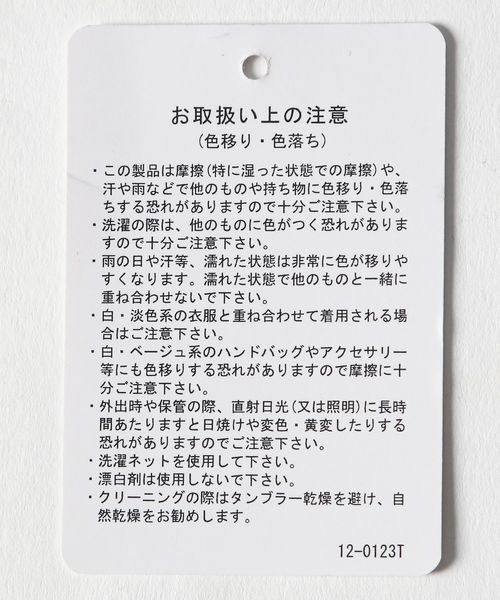 お取扱い上の注意
(色移り・色落ち)
・この製品は摩擦(特に湿った状態での摩擦)や、
汗や雨などで他のものや持ち物に色移り・色落
ちする恐れがありますので十分ご注意下さい。
・洗濯の際は、他のものに色がつく恐れがありま
すので十分ご注意下さい。
・雨の日や汗等、濡れた状態は非常に色が移りや
すくなります。濡れた状態で他のものと一緒に
重ね合わせないで下さい。
・白・淡色系の衣服と重ね合わせて着用される場
合はご注意下さい。
・白・ベージュ系のハンドバッグやアクセサリー
等にも色移りする恐れがありますので摩擦に十
分ご注意下さい。
・外出時や保管の際、直射日光(又は照明)に長時
間あたりますと日焼けや変色・黄変したりする
恐れがありますのでご注意下さい。
・洗濯ネットを使用して下さい。
・漂白剤は使用しないで下さい。
・クリーニングの際はタンブラー乾燥を避け、自
然乾燥をお勧めします。
12-0123T